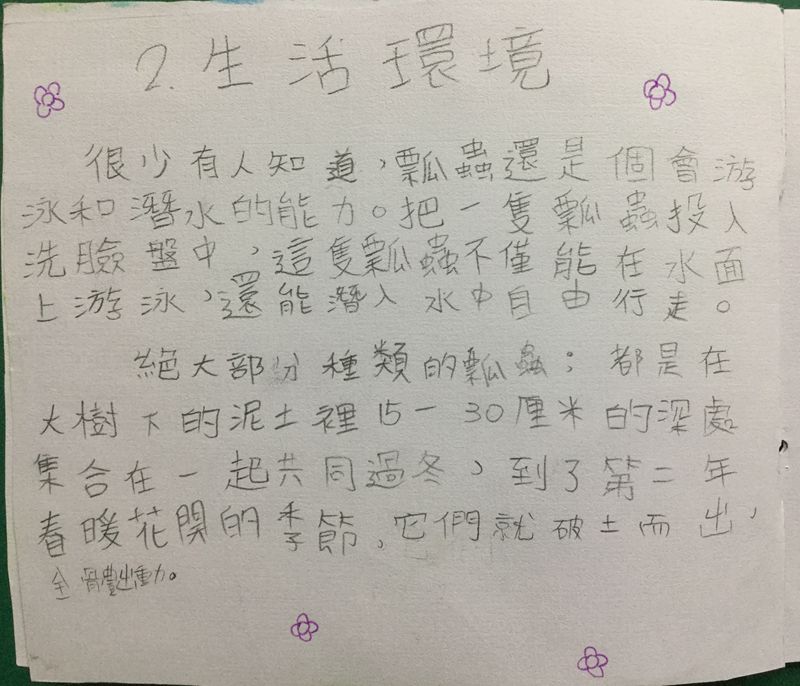 2.生活環境
很少有人知道，瓢蟲還是個會游
泳和潛水的能力。把一隻瓢蟲投入
洗臉盤中，這隻瓢蟲不僅能在水面
上游泳，還能潛入水中自由行走。
絕大部分種類的瓢蟲；都是在
大樹下的泥土裡15－30厘米的深處
集合在一起共同過冬，到了第二年
春暖花開的季節，它們就破土而出，
全體出動。